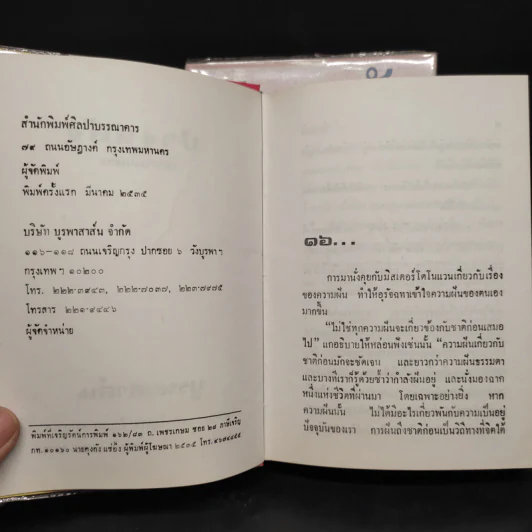 สำนักพิมพ์ศิลปาบรรณาคาร
๗๙ ถนนอัษฎางค์ กรุงเทพมหานคร
ผู้จัดพิมพ์
พิมพ์ครั้งแรก มีนาคม ๒๕๓๕
บริษัท บูรพาสาส์น จำกัด
๑๑๖-๑๑๘ ถนนเจริญกรุง ปากซอย ๖ วังบูรพาฯ
กรุงเทพฯ ๑๐๒๐๐
โทร. ๒๒๒-๓๙๔๓, ๒๒๒-๗๐๓๘, ๒๒๓-๗๙๘๕
โทรสาร ๒๒๑-๙๔๔๖
ผู้จัดจำหน่าย
พิมพ์ที่เจริญรัตน์การพิมพ์ ๑๖๒/๘๓ ถ. เพชรเกษม ซอย ๒๗ ภาษีเจริญ
กท. ๑๐๑๖๐ ผู้พิมพ์ผู้โฆษณา ๒๕๓๕
๑๖...
การมานั่งคุยกับมิสเตอร์โดโนแวนเกี่ยวกับเรื่อง
ของความฝัน ทำให้อุรัจฉทาเข้าใจความฝันของตนเอง
มากขึ้น
“ไม่ใช่ทุกความฝันจะเกี่ยวข้องกับชาติก่อนเสมอ
ไป” แกอธิบายให้หล่อนฟังเช่นนั้น “ความฝันเกี่ยวกับ
ชาติก่อนมักจะชัดเจน และยาวกว่าความฝันธรรมดา
และบางทีเราก็รู้ด้วยซ้ำว่ากำลังฝันอยู่ และนั่งมองฉาก
หนึ่งแห่งชีวิตที่ผ่านมา โดยเฉพาะอย่างยิ่ง หาก
ความฝันนั้น ไม่ได้มีอะไรเกี่ยวพันกับความเป็นอยู่
ปัจจุบันของเรา การฝันถึงชาติก่อนเป็นวิถีทางที่จิตใต้